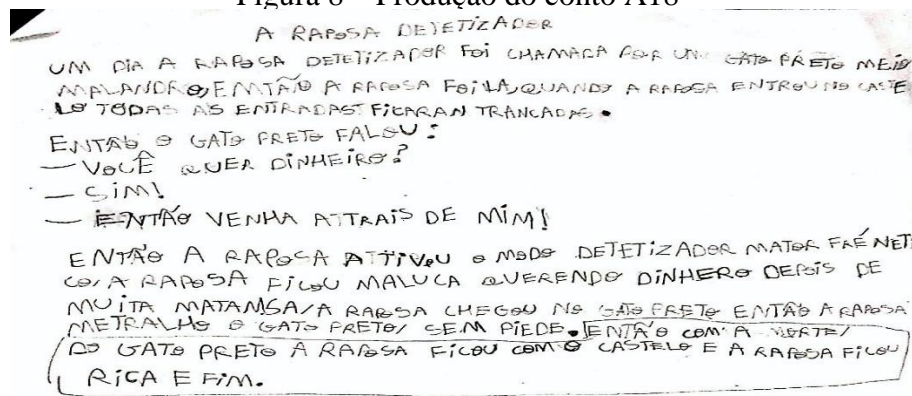 Figura 8 – Produção do conto A18
A RAPOSA DETETIZADOR
UM DIA A RAPOSA DETETIZADOR FOI CHAMACA POR UM GATO PRETO MEIO
MALANDRO, ENTÃO A RAPOSA FOI LÁ, QUANDO A RAPOSA ENTROU NO CASTE
LO TODAS AS ENTRADAS FICARAN TRANCADAS.
ENTÃO O GATO PRETO FALOU:
— VOCÊ QUER DINHEIRO?
— SIM!
— ENTÃO VENHA ATTRAIS DE MIM!
ENTÃO A RAPOSA ATTIVOU O MODO DETETIZADOR MATOR FRÉNETI
CO, A RAPOSA FICOU MALUCA QUERENDO DINHERO DEPOIS DE
MUITA MATANSA, A RAPOSA CHEGOU NO GATO PRETO ENTÃO A RAPOSA
METRALHO O GATO PRETO, SEM PIEDE. ENTÃO COM A MORTE,
DO GATO PRETO A RAPOSA FICOU COM O CASTELO E A RAPOSA FICOU
RICA E FIM.